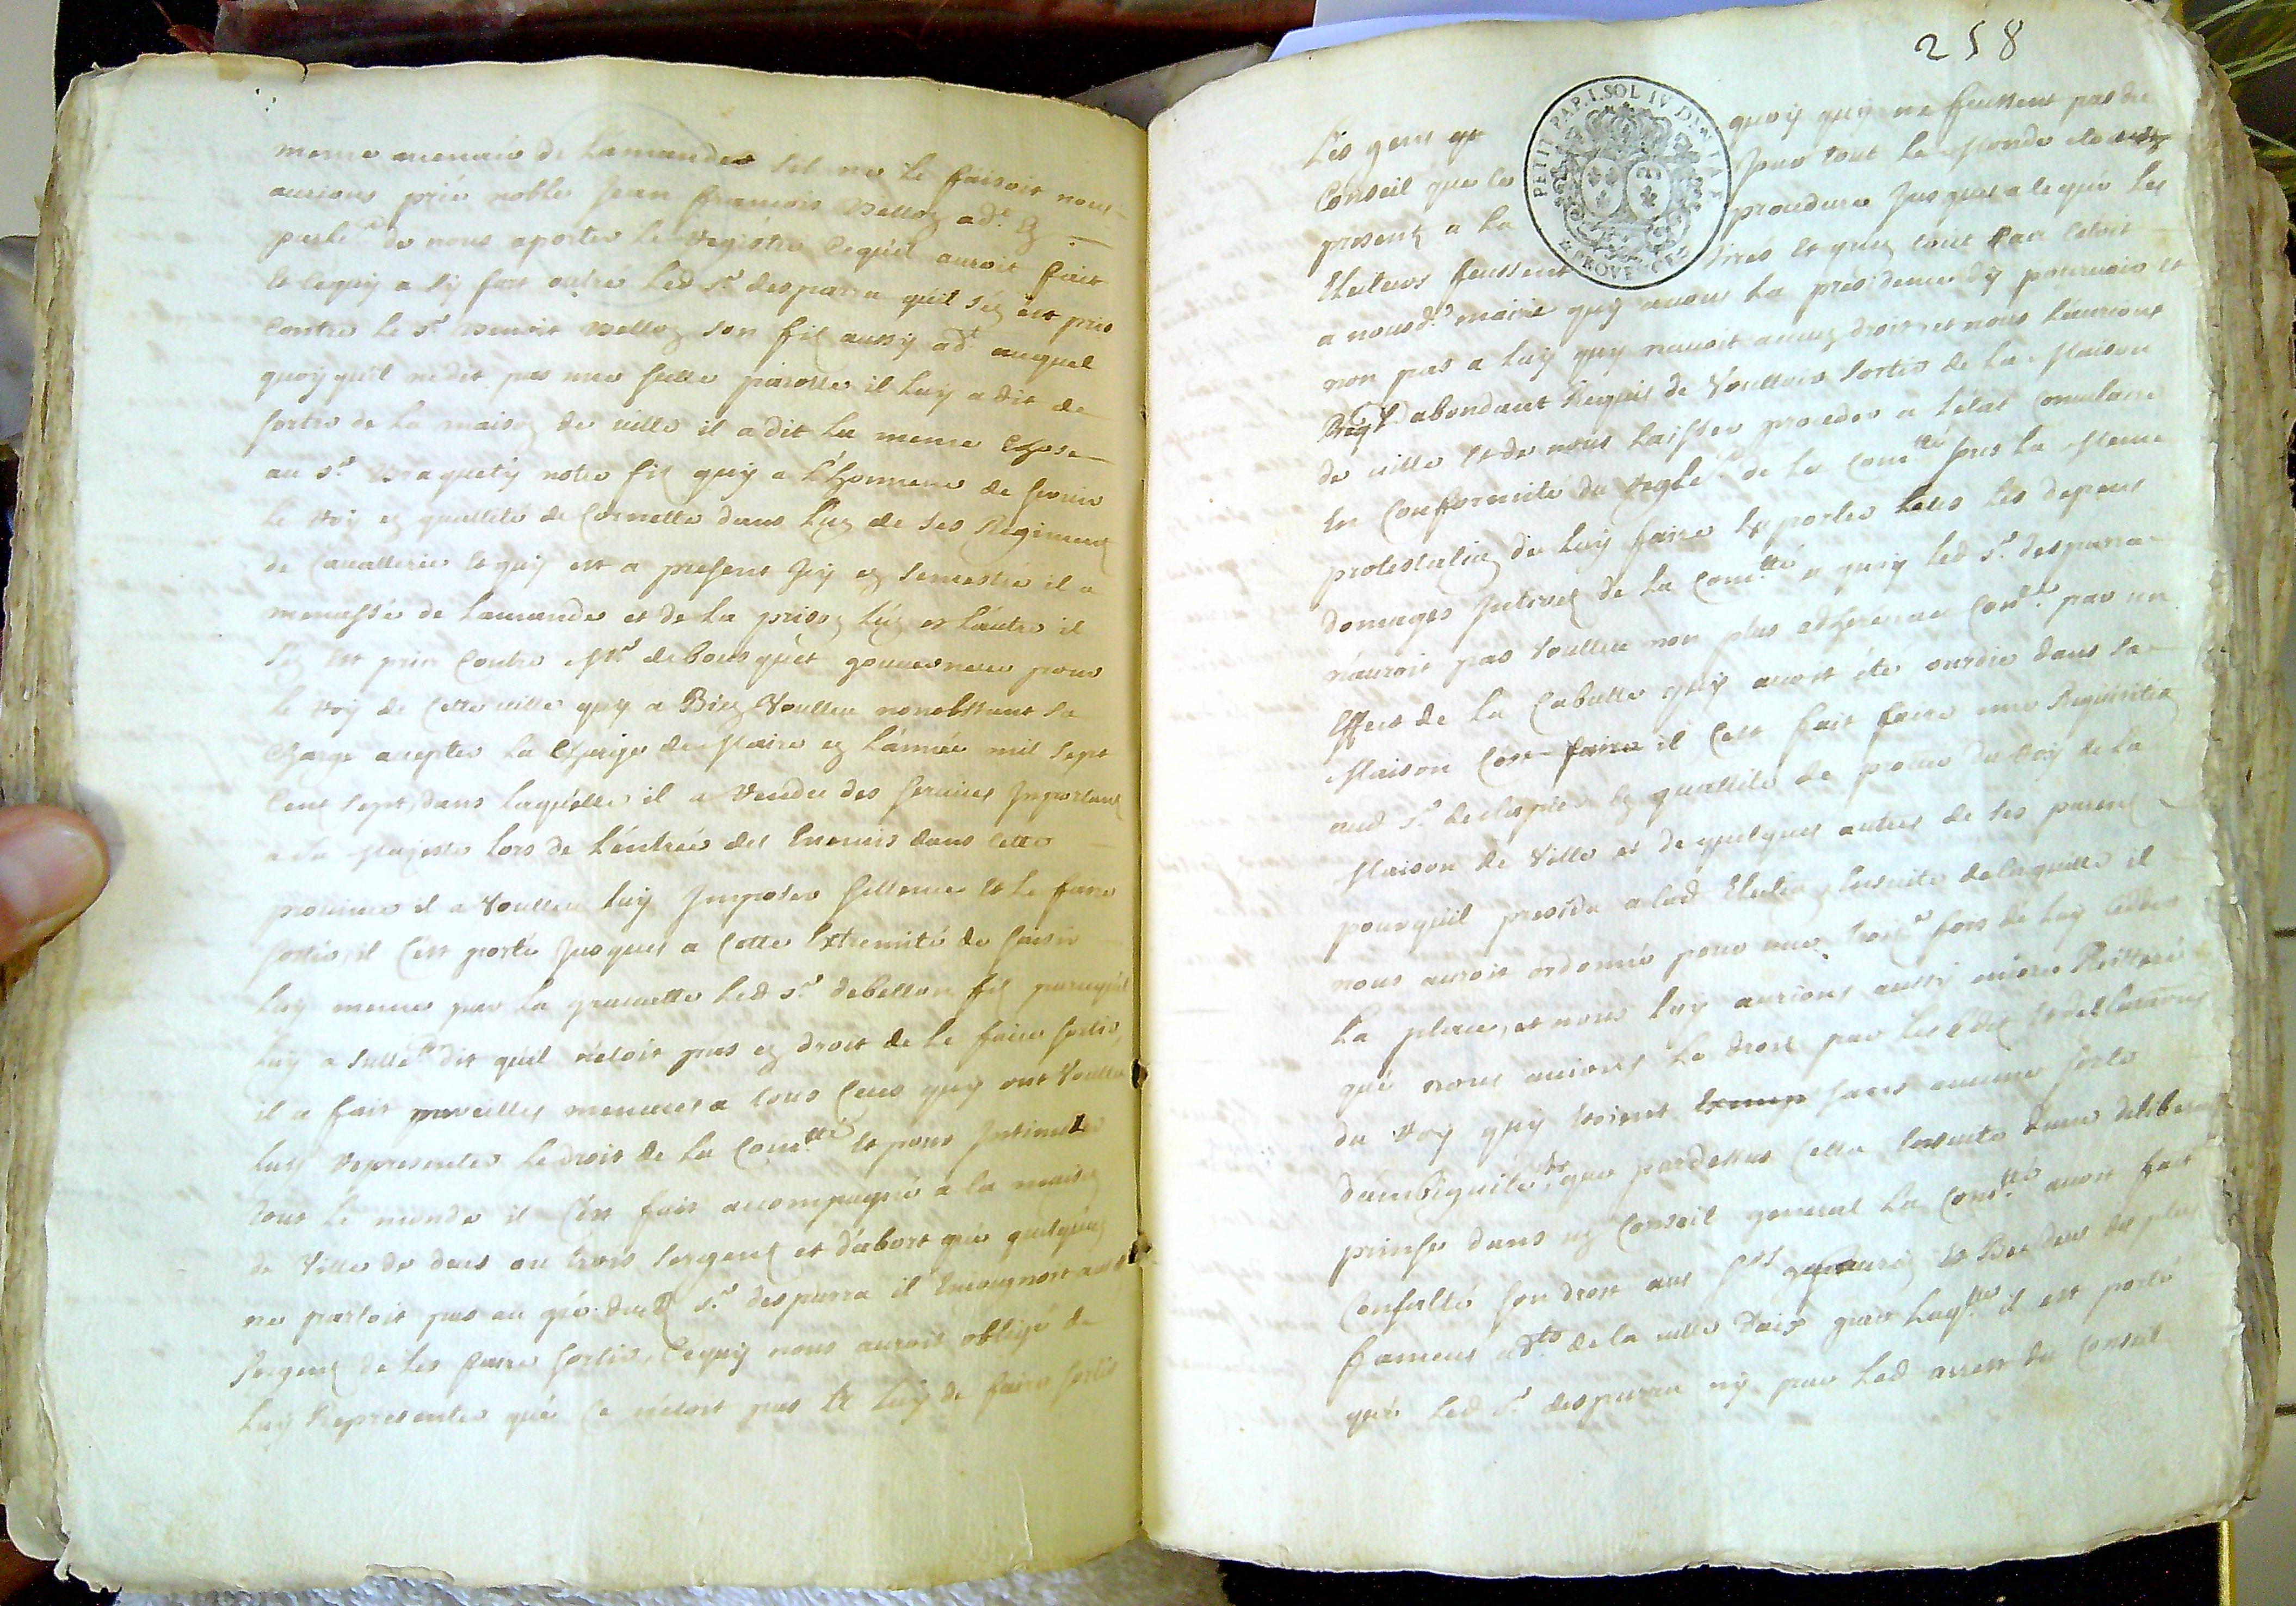 meme menaié de Lamander sil ne le faisoit nous
aurions prié noble Jean francois Bellon adt. &
parlt. de nous aporter le Registre ce quil auroit fait
et cequy a sy fort outre led sr. desparra quil sez est pris
contre le sr. Benoit Bellon son fil aussy adt. auquel
quoy quil ne dit pas une seulle parolle il luy a dit de
sortir de la maison de ville il a dit la meme chose
au sr. Braquety notre fil quy a L'honneur de servir
le Roy en quallité de Cornette dans l'un de ses Regiment
de Cavallerie et quy est a present Icy en semestre il a
menassé de Lamander et de la prison l'un et lautre il
sez est pris contre Mr. debousquet gouverneur pour
le Roy de Cette ville quy a Bien Voulleu nonobstant sa
Charge accepter la Charge de Maire en Lannée mil sept
Cent sept, dans laquelle il a Rendu des services Importans
a sa Majesté lors de L'entrée des Enemis dans cette
province il a Voulleu luy Imposer sillence et le faire
sortir, il s'est porté Jusques a Cette Extremité de saisir
luy meme par la gravatte led sr. debellon fil parcequil
luy a dit quil n'etoit pas en droit de le faire sortir,
il a fait pareilles menaces a tous Ceus quy ont Voulleu
luy Representer le droit de la Comtté. et pour Intimider
tout le monde il s'est fait accompagné a la maison
de Ville de deus ou trois sergens et d'abort que quelqu'un
ne parloit pas au gré dud sr. desparra il Enioignoit aus
sergens de les faire sortir, Cequy nous auroit obligé de
luy Representer que ce n'etoit pas a luy de faire sortir
258
PETIT PAP. 1. SOL IV DEN LA F
PROVENCE
Les gens
quoy quy ne fussent pas du
Conseil que les
pour tout le Monde etoit
present a la
procedure Jusques a ce que les
Electeurs feussent
tires et que tout etoit
a nousd. maire quy avons la presidence dy pourvoir et
non pas a luy quy n'avoit aucun droit, et nous l'aurions
d'abondant Requis de Voulloir sortir de la Maison
de ville et de nous laisser proceder a l'etat Consulaire
En Conformité du Reglet. de la Comtté. sous la Meme
protestation de luy faire supporter tous les depens
domages Interes de la Comtté. a quoy led sr. desparra
n'auroit pas Voulleu non plus par un
Effect de la Caballe quy avoit été ourdie dans sa
Maison il s'est fait faire une Requisition
aud sr. en quallité de procur. du Roy de la
Maison de Ville et de quelques autres de ses parens
pour quil presida alad Election, Ensuite delaquelle il
nous auroit ordonné pour une troise. fois de luy ceder
la place, et nous luy aurions aussy encore Reiteré
que nous avions le droit par les Edit et declarations
du Roy quy étoient sans aucune sorte
d'ambiguité, et que pardessus Cella Ensuite d'une deliberation
prinse dans un Conseil general la Comtté. avoit fait
Consulté son droit aus srs. et deus des plus
fameus adts. de la ville d'aix par laqlle. il est porté
que led sr. desparra ny par led arrest du Conseil